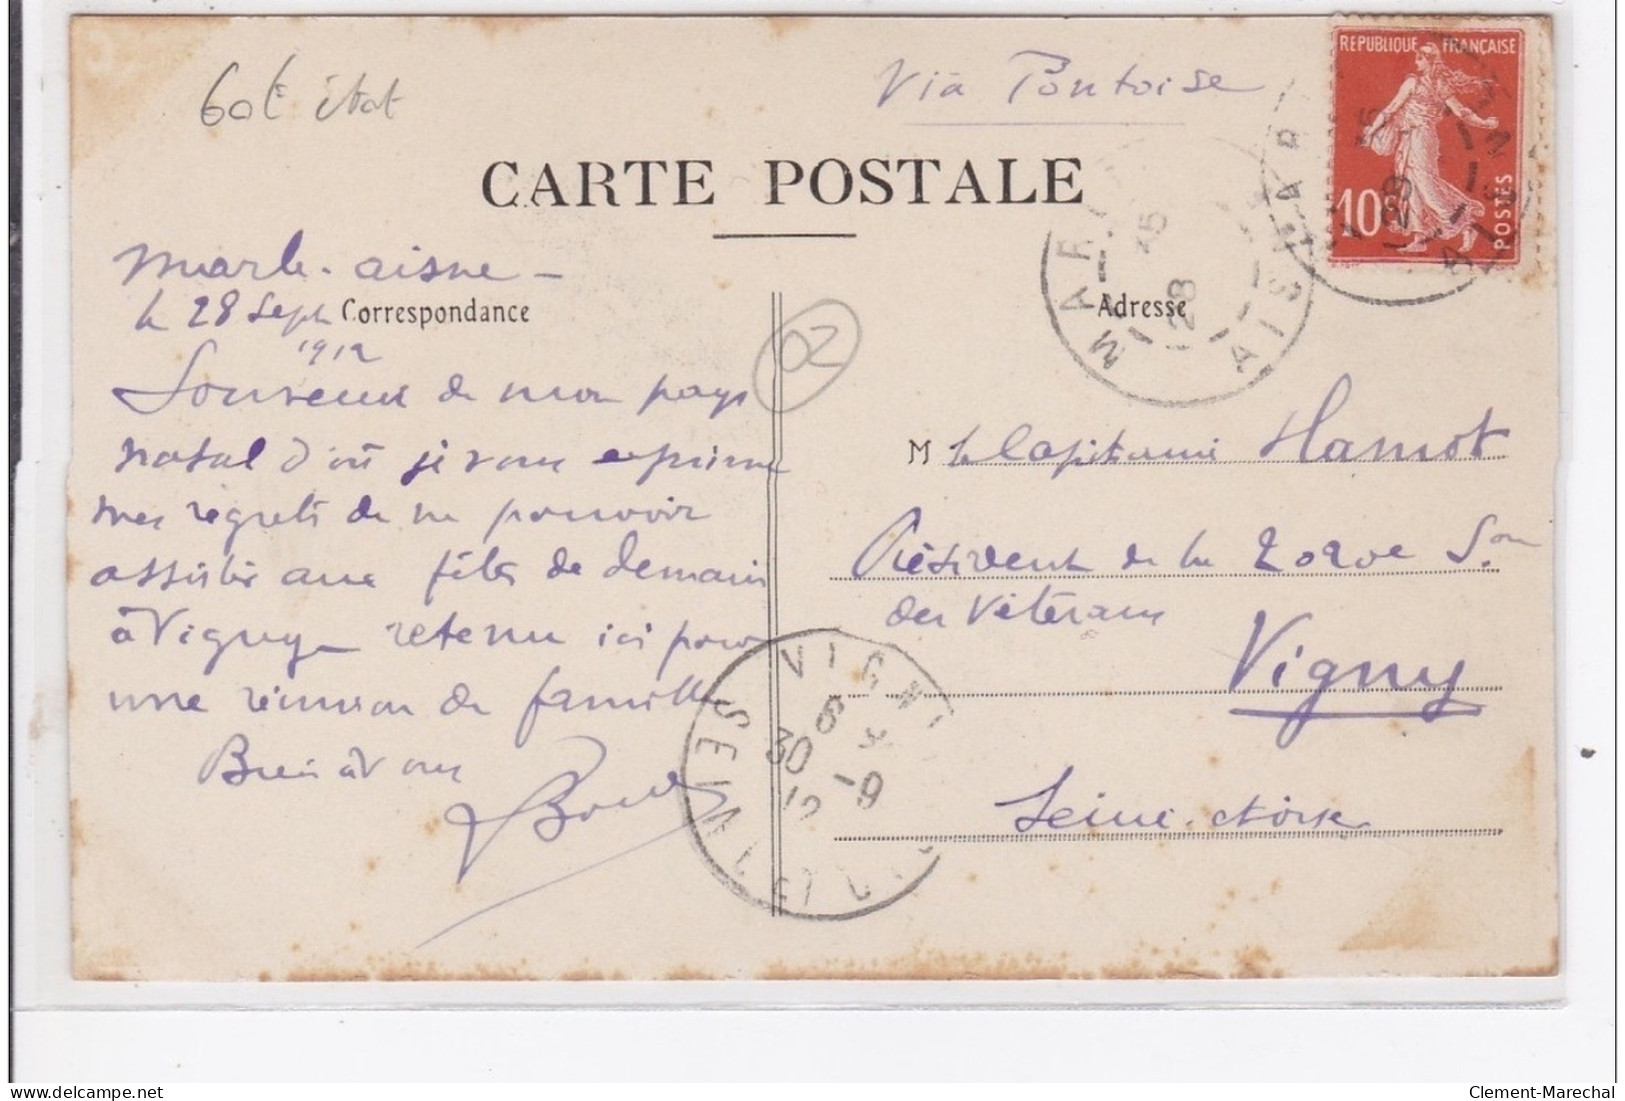 60c état
Via Pontoise
REPUBLIQUE FRANÇAISE
10c
POSTES
CARTE POSTALE
MARLE
28
AISNE
Marle - aisne -
le 28 Sept
1912
Correspondance
Adresse
02
Souvenir de mon pays
natal d'où je vous exprime
mes regrets de ne pouvoir
assister aux fêtes de demain
à Vigny, retenu ici pour
une réunion de famille
Bien à vous
M le Capitaine Hamot
Président de la 2020e Son
des Vétérans
Vigny
Seine-et-Oise
VIGNY
6
30 -9
12
SEINE-ET-OISE
Clement-Marechal